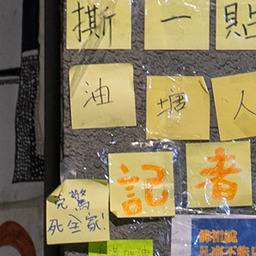 撕 一 貼
油 塘 人
記 者
冤驚
死全家!